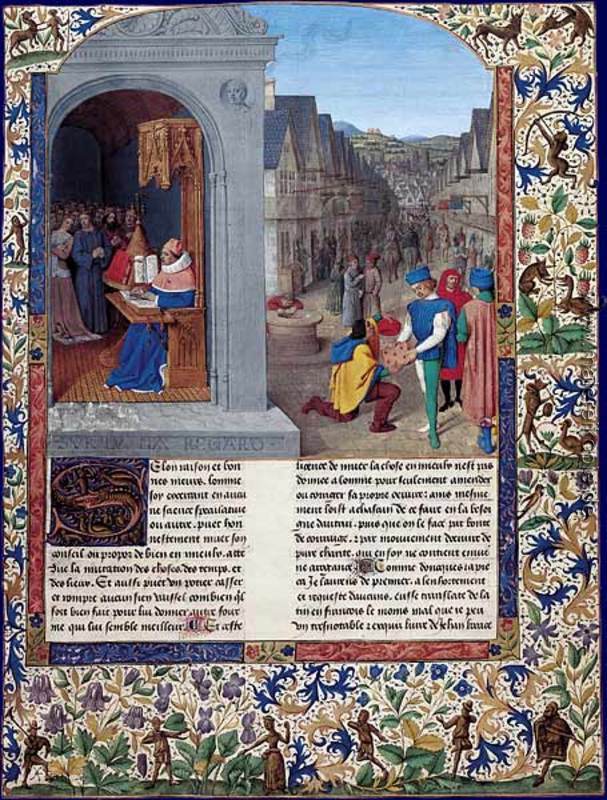 SVR LV HA REGARD
Selon raison et bon
nes meurs. lomme
soy excercant en aucu
ne science speculatiue
ou autre. puet hon
nestement muer son
conseil ou propos de bien en mieulx. atte
due la mutacion des choses. des temps. et
des lieux. Et aussi puet vn potier casser
et rompre aucun sien vaissel combien quil
soit bien fait pour lui donner autre four
me qui lui semble meilleur. Et ceste
licence de muer la chose en mieulx nest pas
donnee a lomme pour seulement amender
ou corriger sa propre oeuure: ains mesme
ment loist a chascun de ce faire en la besor
gne dautrui. puis que on le face par bonte
de couraige. et par mouuement doeuure de
pure charite. qui en soy ne contient enuie
ne arrogance. Comme doncques ia pie
ca Je laurens de premier. a lenhortement
et requeste daucuns. eusse translate de la
tin en francois le moins mal que ie peu
vn tresnotable et exquis liure de Jehan bocace